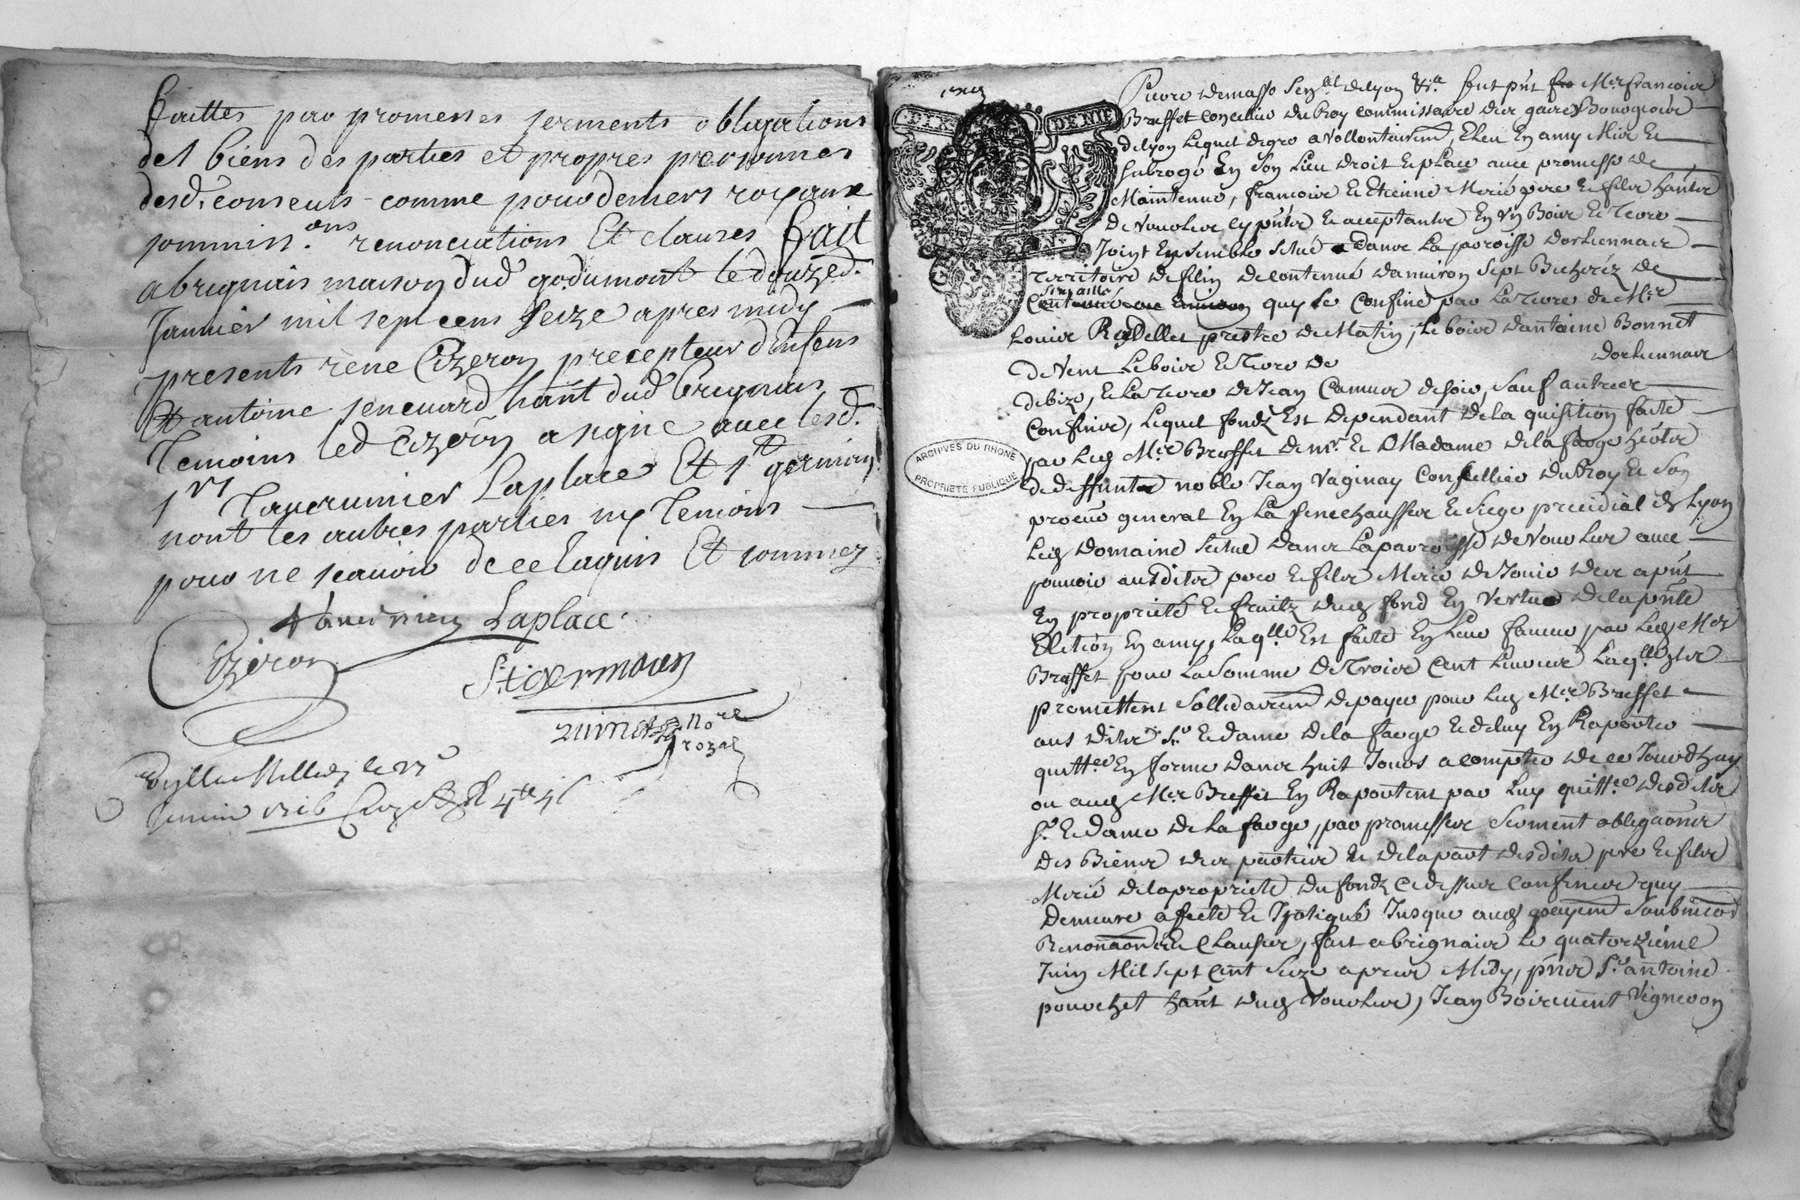 faittes par promesses serments obligations
des biens des parties et propres personnes
desd. consents comme pour deniers royaux
sommiss.ons renonciations Et clauses fait
a brignais maison dud godumont le douze d.
Janvier mil sept cens seize apres midy
presents rene Cizeron precepteur d'Enfens
Et antoine hant dud brignais
temoins led Cizeron a signé avec lesd.
srs Tavernier Laplace Et st germain
nont les autres parties ny temoins
pour ne scavoir de ce Enquis Et sommez
Tavernier Laplace
Cizeron
St germain
No.re
royal
Janvier 1716
DENIE
Pierre demasso Sen.al delyon &.a fut pnt M.re francois
Brosset Conseiller du Roy commissaire
delyon Lequel degré a vollontairem.t Eleu En amy Mis Et
subrogé En Son Lieu droit Et place avec promesse de
Maintenue, francois Et Etienne Merié pere Et fils hants
de Vourles cy pnts Et acceptants En Un Bois Et Terre
Joint Ensemble Situé dans La paroisse dorliennas
Territoire de filin de contenue denviron sept Bicherés de
quy se Confine par La Terre de M.re
Louis prestre de Matin, Le bois dantoine Bonnet
dorliennas
de Vent Le bois Et Terre de
debize, Et La Terre de Jean Camus de soir, Sauf autres
Confins, Lequel fondz Est dependant de la quisition faitte
par Led M.re Brosset de m.r Et Madame de la farge heritiers
de deffunt noble Jean Vaginay Conseillier du Roy Et Son
procur general En La Senechaussee Et Siege presidial de Lyon
Led domaine Situé dans La parroisse de Vourles avec
pouvoir ausdits pere Et fils Merié de Jouir des a pnt
En propriété Et fruitz dud fond En Vertu de la pnte
Election En amy, Laq.lle Est faite En Leur faveur par Led M.re
Brosset pour La Somme de Trois Cent Livres Laq.lle Ils
promettent Sollidairem.t de payer pour Led M.re Brosset
aus dits S.r Et dame de la farge Et deluy En Raporter
quitt.ce En forme dans huit Jours a compter de ce Jourdhuy
ou aud M.re Brosset En Raportent par Luy quitt.ce desdits
S.r Et dame de La farge, par promesses Serment obligaons
des Biens des parties Et de la part desdits pere Et fils
Merié de la propriete du fondz Cy dessus Confiné quy
demeure affecté Et Ipotiqué Jusque aud payem.t Soubmions
Renonãons Et Clauses, fait a brignais Le quatorzième
Juin Mil Sept Cent Seize apres Midy, pnts S.r antoine
pourchet hant dud Vourles, Jean Vigneron
ARCHIVES DU RHONE
PROPRIÉTÉ PUBLIQUE